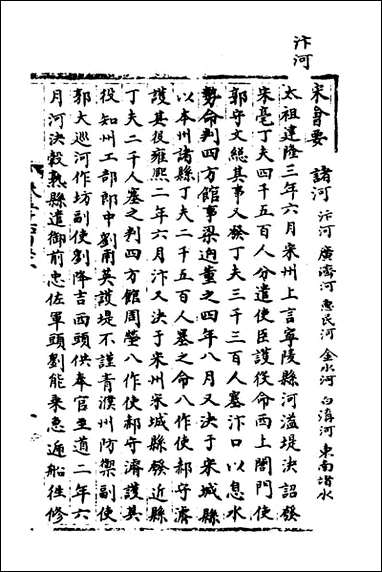 汴河
宋會要 諸河 汴河 廣濟河 惠民河 金水河 白溝河 東南諸水
太祖建隆三年六月宋州上言寧陵縣河溢堤決詔發
宋亳丁夫四千五百人分遣使臣護役命西上閤門使
郭守文總其事又發丁夫三千三百人塞汴口以息水
勢命判四方館事梁迥董之四年八月又決于宋城縣
以本州諸縣丁夫二千五百人塞之命八作使郝守濬
護其役雍熙二年六月汴又決于宋州宋城縣發近縣
丁夫二千人塞之判四方館周瑩八作使郝守濬護其
役知州工部郎中劉甫英護堤不謹責濮州防禦副使
郭大巡河作坊副使劉降吉西頭供奉官至道二年六
月河決穀熟縣遣御前忠佐軍頭劉能乘急遞船徃修